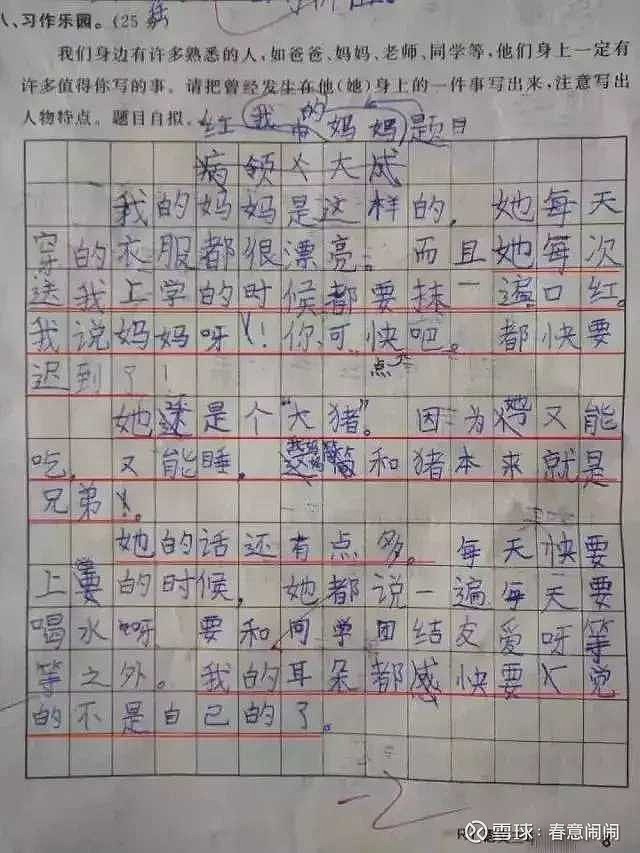 八、习作乐园。(25分)
我们身边有许多熟悉的人,如爸爸、妈妈、老师、同学等,他们身上一定有
许多值得你写的事。请把曾经发生在他(她)身上的一件事写出来,注意写出
人物特点。题目自拟。
我的妈妈 题目
我的妈妈是这样的,她每天
穿的衣服都很漂亮。而且她每次
送我上学的时候都要抹一遍口红。
我说妈妈呀!你可快点吧。都快要
迟到了!
她还是个“大猪”。因为她又能
吃,又能睡,和猪本来就是
兄弟。
她的话还有点多。每天快要
上学的时候,她都说一遍每天要
喝水呀要和同学团结友爱呀等
等之外。我的耳朵都感快要觉
的不是自己的了。
雪球:春意闹闹